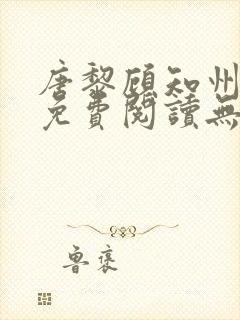 唐黎顧知州
免費閱讀無
魯褒